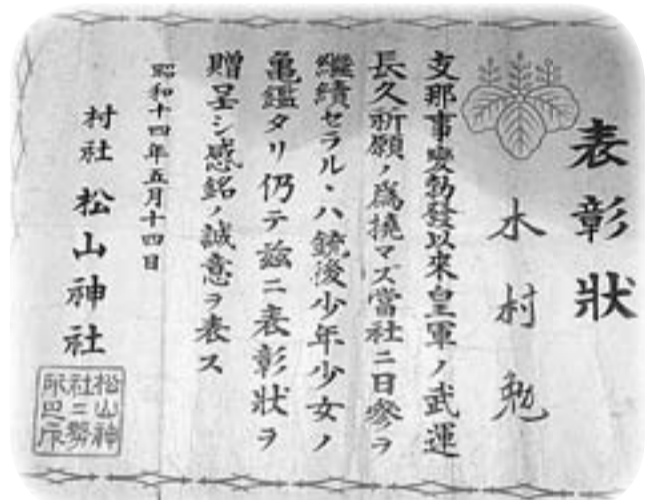 表彰狀
木村勉
支那事變勃發以來皇軍ノ武運
長久祈願ノ爲撓マズ當社ニ日參ヲ
繼續セラルヽハ銃後少年少女ノ
亀鑑タリ仍テ茲ニ表彰狀ヲ
贈呈シ感銘ノ誠意ヲ表ス
昭和十四年五月十四日
村社 松山神社